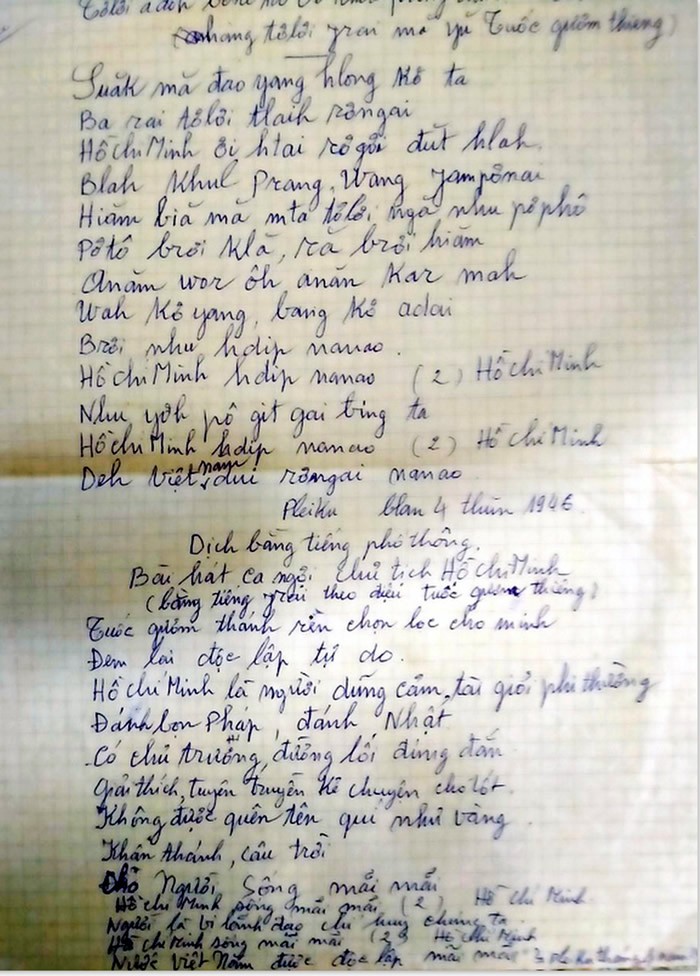 Tơlơi adoh
(hang tơlơi Jrai mă yŭ Tuốc gươm thiêng)
Suăk mă đao yang hlong kơ ta
Ba rai tơlơi tlaih rơngai
Hồ chí Minh ơi htai rơgơi đut hlah
Blah Khul Prang, Wang Jampơnai
Hiăm biă mă mta tơlơi ngă nhu pơphô
Pơtô brơi klă, ră brơi hiăm
Anăm wor ôh anăn kar mah
Wah kơ yang, bang kơ adai
Brơi nhu hdip nanao.
Hồ chí Minh hdip nanao (2) Hồ chí Minh
Nhu yơh pô git gai bing ta
Hồ chí Minh hdip nanao (2) Hồ chí Minh
Deh Việt nam dui rơngai nanao.
Pleiku blan 4 thŭn 1946.
Dịch bằng tiếng phổ thông.
Bài hát ca ngợi chủ tịch Hồ chí Minh
(bằng tiếng Jrai theo điệu tuốc gươm thiêng)
Tuốc gươm thánh rèn chọn lọc cho mình
Đem lại độc lập tự do.
Hồ chí Minh là người dũng cảm, tài giỏi phi thường
Đánh bọn Pháp, đánh Nhật
Có chủ trương, đường lối đúng đắn
Giải thích, tuyên truyền kể chuyện cho tốt.
Không được quên tên quí như vàng.
Khấn thánh, cầu trời
Cho Người sống mãi mãi
Hồ chí Minh sống mãi mãi (2) Hồ chí Minh
Người là vị lãnh đạo chỉ huy chúng ta
Hồ chí Minh sống mãi mãi (2) Hồ chí Minh
Nước Việt Nam được độc lập mãi mãi